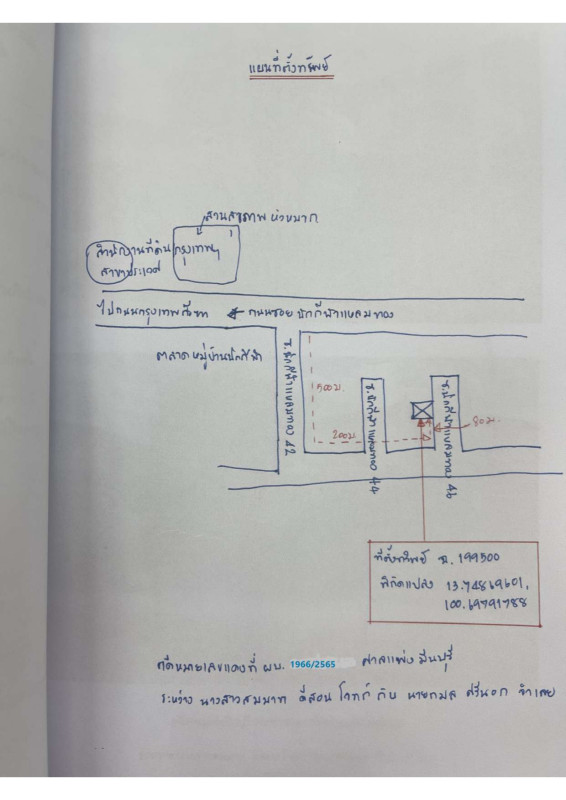 แผนที่ตั้งทรัพย์
สวนสุขภาพ หัวหมาก
สำนักงานที่ดินกรุงเทพฯ
สาขาประเวศ
ไปถนนกรุงเทพกรีฑา ← ถนนซอย นักกีฬาแหลมทอง
ตลาดหมู่บ้านนักกีฬา
ซ.นักกีฬาแหลมทอง 42
500ม.
200ม.
ซ.นักกีฬาแหลมทอง 44
ซ.นักกีฬาแหลมทอง 46
80ม.
ที่ตั้งทรัพย์ ฉ. 199500
พิกัดแปลง 13.74869601,
100.69791788
คดีหมายเลขแดงที่ ผบ. 1966/2565 ศาลแพ่งมีนบุรี
ระหว่าง นางสาวสมมาท ดีสอน โจทก์ กับ นายกมล ศรีนอก จำเลย